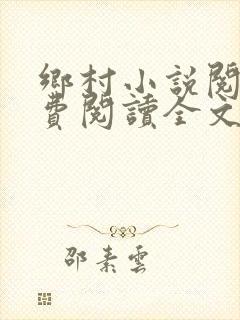 鄉村小說閱
費閱讀全文
邵素雲